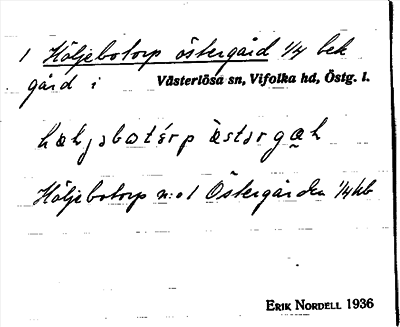 1 Höljebotorp östergård 1/4 bek
gård i Västerlösa sn, Vifolka hd, Östg. l.
Höljebotorp n:o 1 Östergården 1/4
ERIK NORDELL 1936